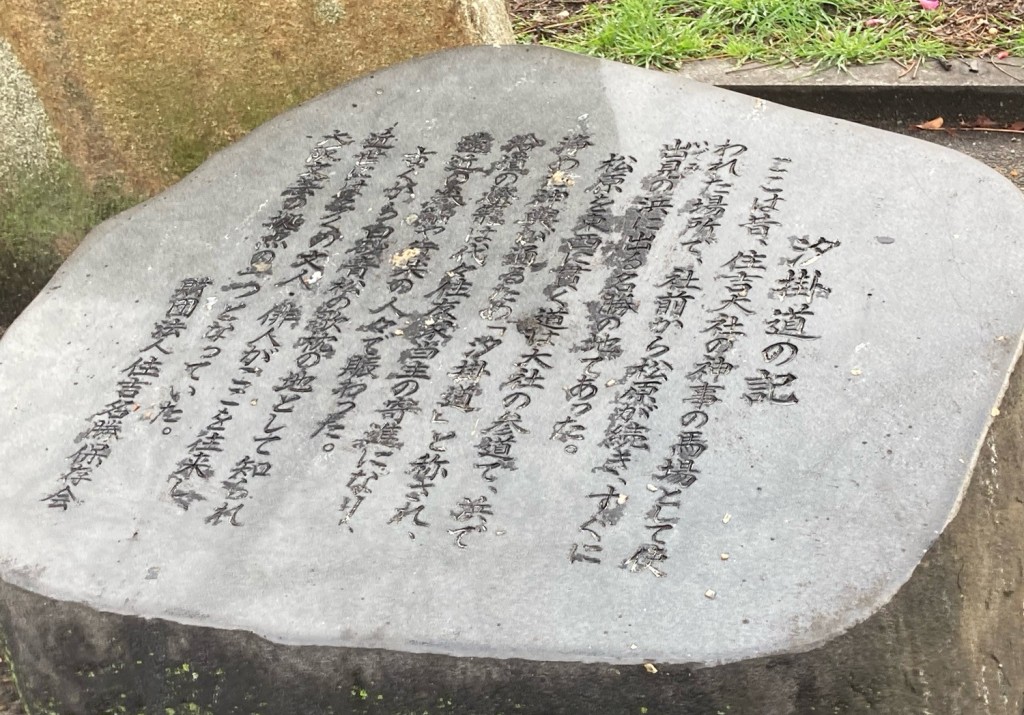 汐掛道の記
ここは昔、住吉大社の神事の馬場として使
われた場所で、社前から松原が続き、すぐに
出見の浜に出る名勝の地であった。
松原を東西に貫く道は大社の参道で、浜で
浄めの神輿が通るため「汐掛道」と称され、
の燈籠は代々住友家当主の寄進になり、
遠近の参詣や行楽の人々で賑わった。
古くから白砂青松の歌枕の地として知られ
近世には多くの文人、俳人がここを往来し
大阪文芸の拠点の一つとなっていた。
財団法人住吉名勝保存会